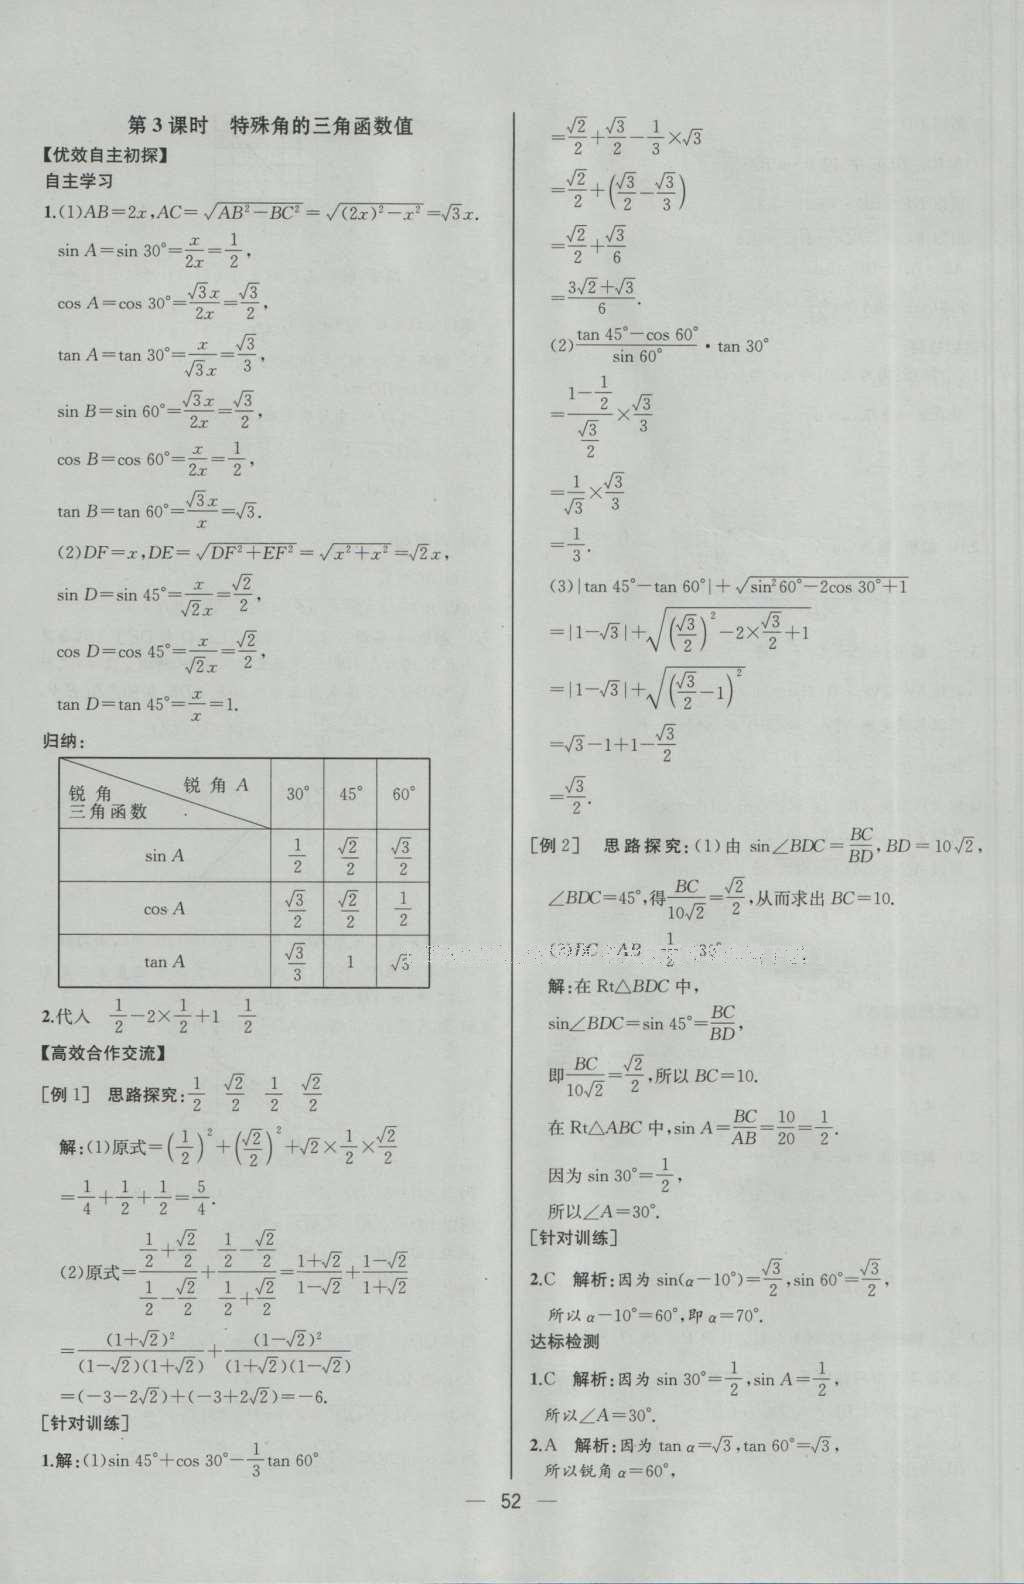 第3课时　特殊角的三角函数值
【优效自主初探】
自主学习
1.(1)AB=2x,AC=√(AB²-BC²)=√((2x)²-x²)=√3x.
sin A=sin 30°=x/2x=1/2,
cos A=cos 30°=√3x/2x=√3/2,
tan A=tan 30°=x/√3x=√3/3,
sin B=sin 60°=√3x/2x=√3/2,
cos B=cos 60°=x/2x=1/2,
tan B=tan 60°=√3x/x=√3.
(2)DF=x,DE=√(DF²+EF²)=√(x²+x²)=√2x,
sin D=sin 45°=x/√2x=√2/2,
cos D=cos 45°=x/√2x=√2/2,
tan D=tan 45°=x/x=1.
归纳:
锐角A 30° 45° 60°
锐角
三角函数
sin A 1/2 √2/2 √3/2
cos A √3/2 √2/2 1/2
tan A √3/3 1 √3
2.代入 1/2-2×1/2+1 1/2
【高效合作交流】
[例1] 思路探究:1/2 √2/2 1/2 √2/2
解:(1)原式=(1/2)²+(√2/2)²+√2×1/2×√2/2
=1/4+1/2+1/2=5/4.
(2)原式=(1/2+√2/2)/(1/2-√2/2)+(1/2-√2/2)/(1/2+√2/2)=(1+√2)/(1-√2)+(1-√2)/(1+√2)
=(1+√2)²/((1-√2)(1+√2))+(1-√2)²/((1+√2)(1-√2))
=(-3-2√2)+(-3+2√2)=-6.
[针对训练]
1.解:(1)sin 45°+cos 30°-1/3tan 60°
=√2/2+√3/2-1/3×√3
=√2/2+(√3/2-√3/3)
=√2/2+√3/6
=(3√2+√3)/6.
(2)(tan 45°-cos 60°)/sin 60°·tan 30°
=(1-1/2)/(√3/2)×√3/3
=1/√3×√3/3
=1/3.
(3)|tan 45°-tan 60°|+√(sin²60°-2cos 30°+1)
=|1-√3|+√((√3/2)²-2×√3/2+1)
=|1-√3|+√((√3/2-1)²)
=√3-1+1-√3/2
=√3/2.
[例2] 思路探究:(1)由 sin∠BDC=BC/BD,BD=10√2,
∠BDC=45°,得BC/10√2=√2/2,从而求出BC=10.
BC AB 1/2 30°
解:在Rt△BDC中,
sin∠BDC=sin 45°=BC/BD,
即BC/10√2=√2/2,所以BC=10.
在Rt△ABC中,sin A=BC/AB=10/20=1/2.
因为sin 30°=1/2,
所以∠A=30°.
[针对训练]
2.C 解析:因为sin(α-10°)=√3/2,sin 60°=√3/2,
所以α-10°=60°,即α=70°.
达标检测
1.C 解析:因为sin 30°=1/2,sin A=1/2,
所以∠A=30°.
2.A 解析:因为tan α=√3,tan 60°=√3,
所以锐角α=60°,
— 52 —